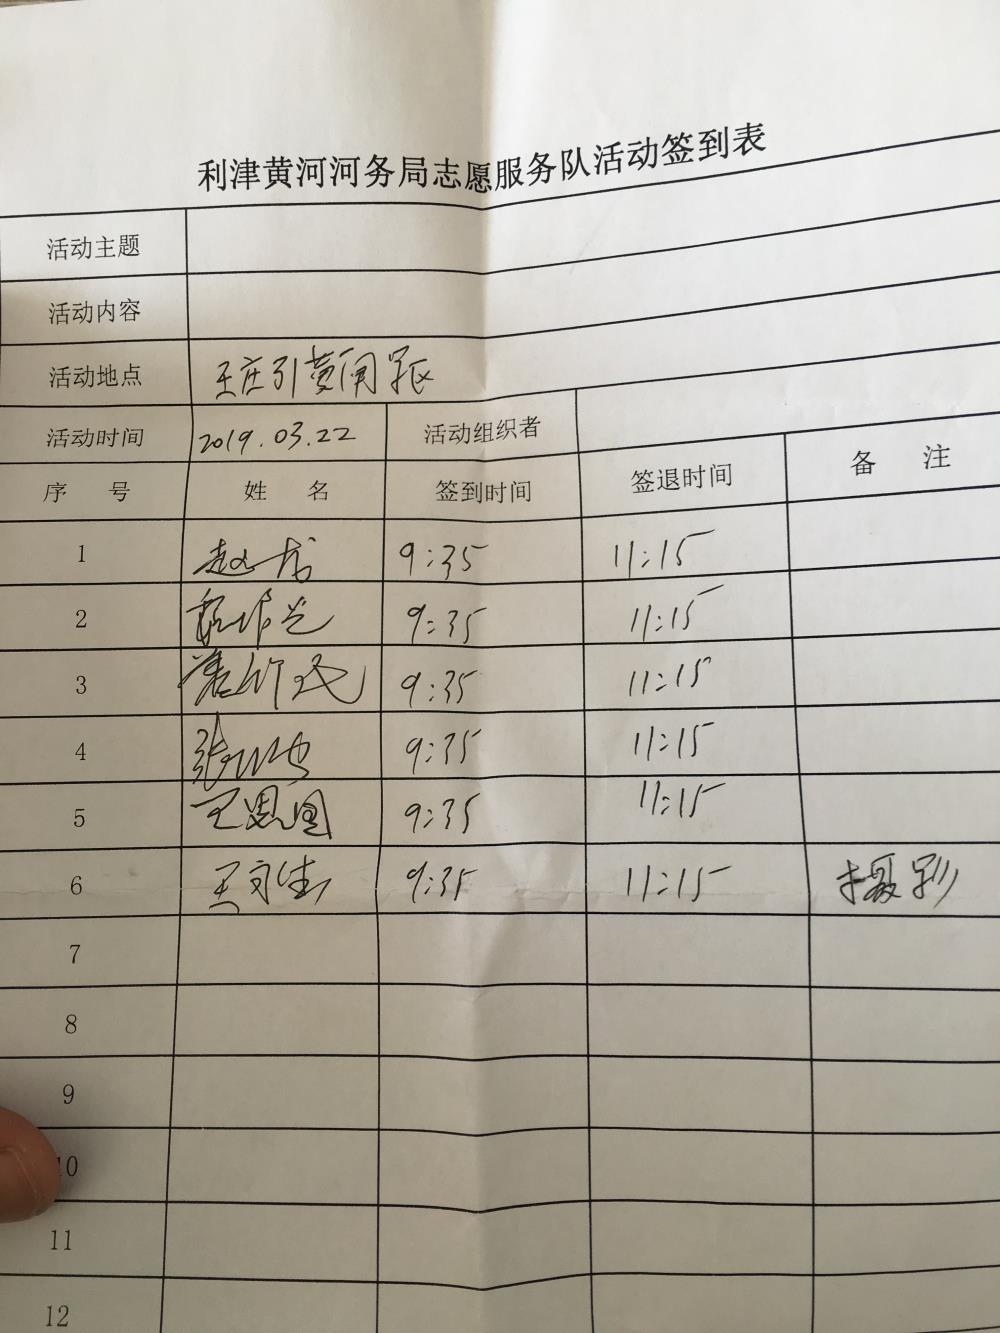 利津黄河河务局志愿服务队活动签到表
活动主题
活动内容
活动地点 王庄引黄闸
活动时间 2019.03.22 活动组织者
序 号 姓 名 签到时间 签退时间 备 注
1 9:35 11:15
2 9:35 11:15
3 9:35 11:15
4 9:35 11:15
5 王恩国 9:35 11:15
6 王文生 9:35 11:15 摄影
7
8
9
10
11
12